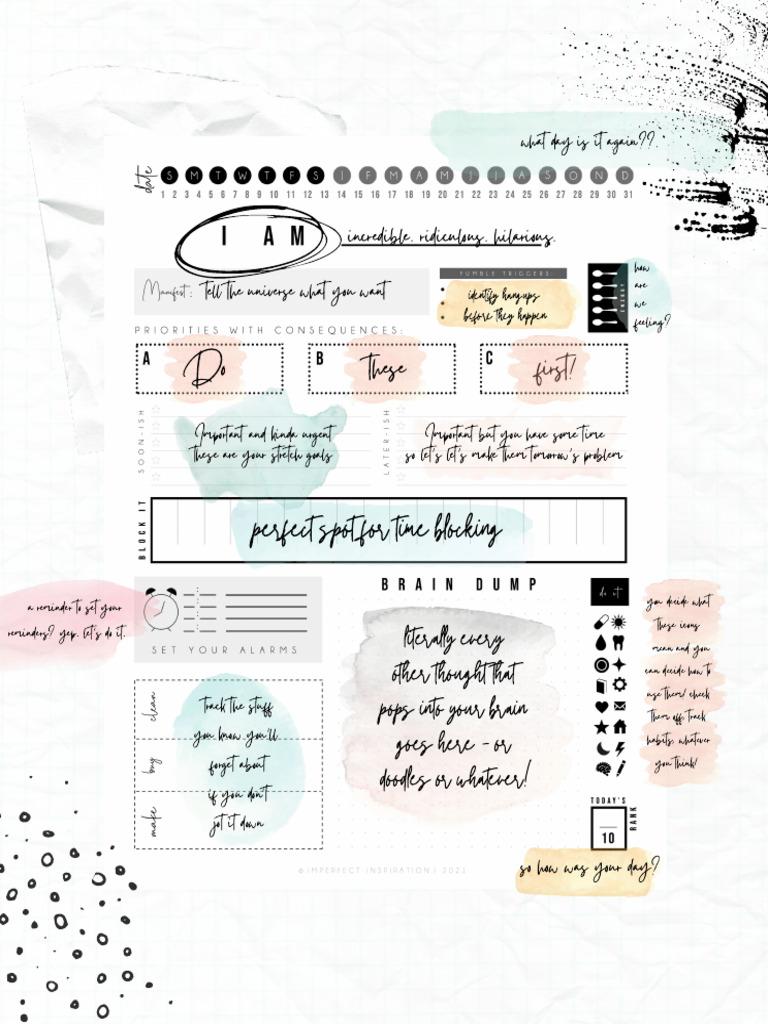 what day is it again??
date
S M T W T F S J F M A M J J A S O N D
1 2 3 4 5 6 7 8 9 10 11 12 13 14 15 16 17 18 19 20 21 22 23 24 25 26 27 28 29 30 31
I AM incredible. ridiculous. hilarious.
Manifest: Tell the universe what you want
FUMBLE TRIGGERS:
identify hangups
before they happen
ENERGY
how
are
we
feeling?
PRIORITIES WITH CONSEQUENCES:
A Do
B These
C first!
SOON-ISH
Important and kinda urgent
these are your stretch goals
LATER-ISH
Important but you have some time
so let's let's make them tomorrow's problem
BLOCK IT
perfect spot for time blocking
a reminder to set your
reminders? yep. let's do it.
SET YOUR ALARMS
clean
buy
make
track the stuff
you know you'll
forget about
if you don't
jot it down
BRAIN DUMP
literally every
other thought that
pops into your brain
goes here - or
doodles or whatever!
do it
you decide what
these icons
mean and you
can decide how to
use them! check
them off, track
habits, whatever
you think!
TODAY'S
RANK
10
so how was your day?
©IMPERFECT INSPIRATION | 2021